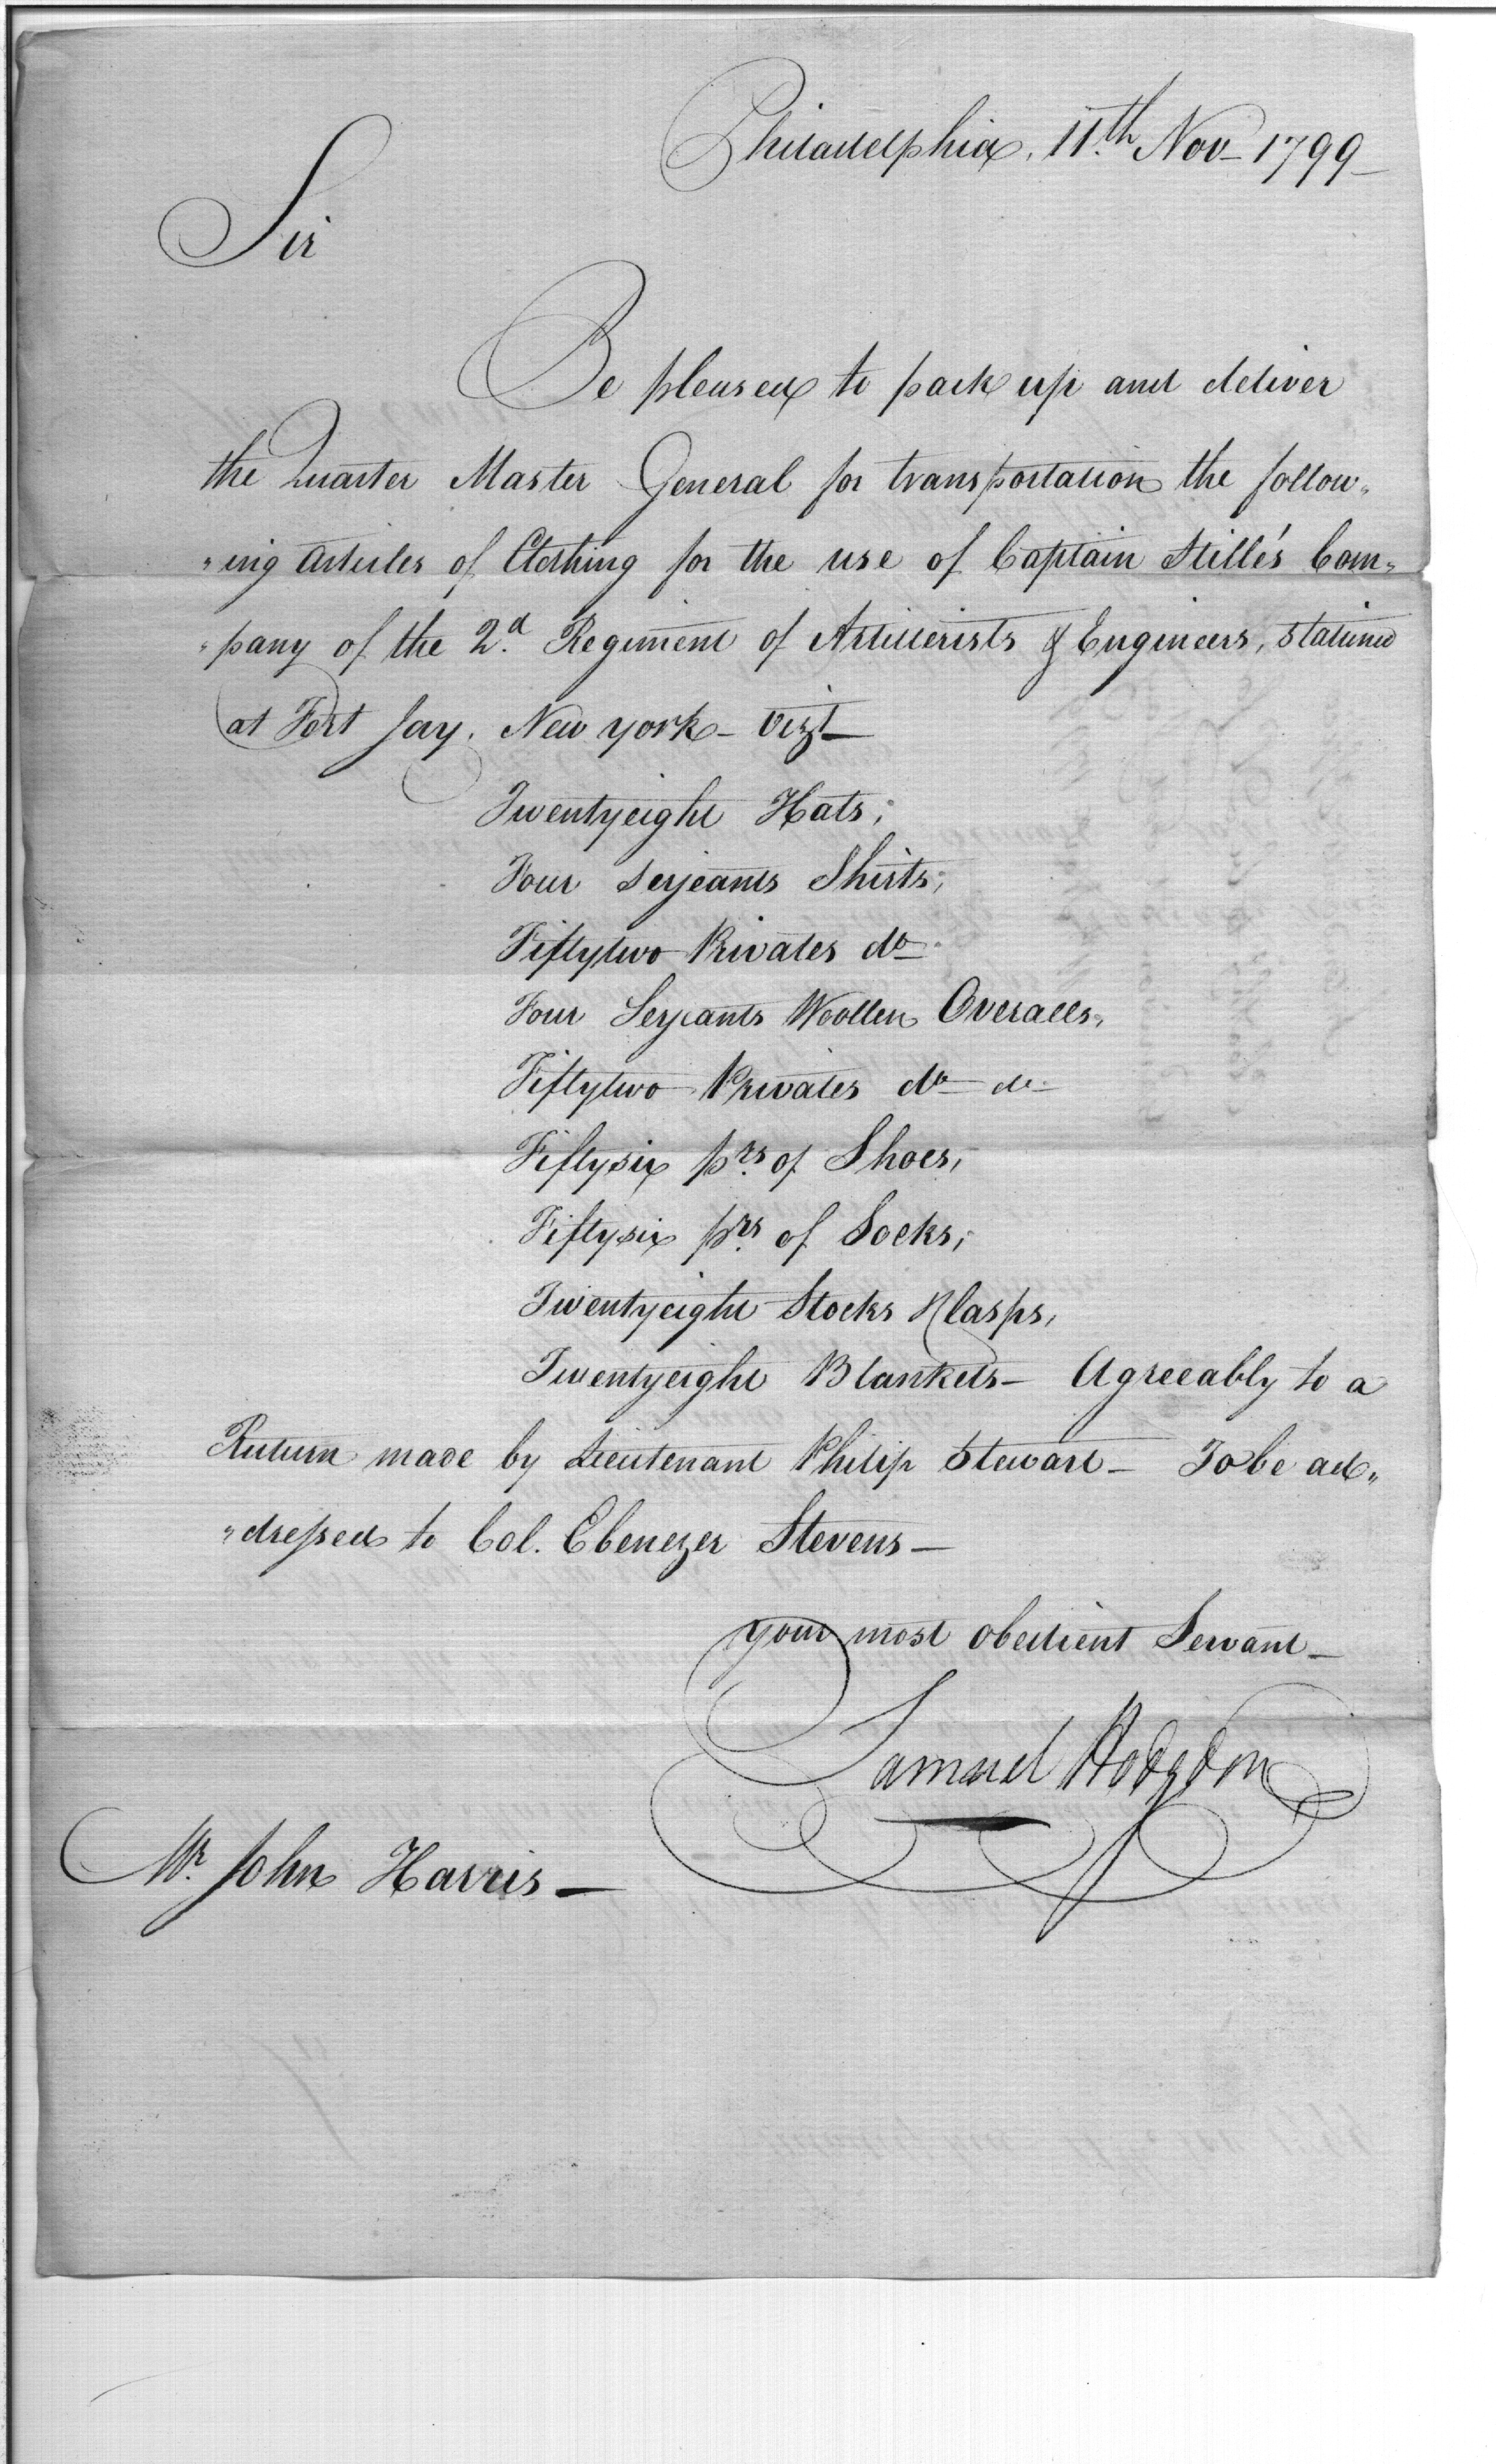 Philadelphia, 11.th Nov– 1799–
Sir
Be pleased to pack up and deliver
the Quarter Master General for transportation the follow„
„ing Articles of Clothing for the use of Captain Stille's Com„
„pany of the 2.d Regiment of Artillerists & Engineers, stationed
at Fort Jay. New York– Vizt–
Twentyeight Hats;
Four Serjeants Shirts;
Fiftytwo Privates do
Four Serjeants Woollen Overalls,
Fiftytwo Privates do– do–
Fiftysix prs of Shoes,
Fiftysix prs of Socks;
Twentyeight Stocks & Clasps,
Twentyeight Blankets– Agreeably to a
Return made by Lieutenant Philip Stewart– To be ad„
„dressed to Col. Ebenezer Stevens–
your most obedient Servant–
Samuel Hodgdon
Mr. John Harris–